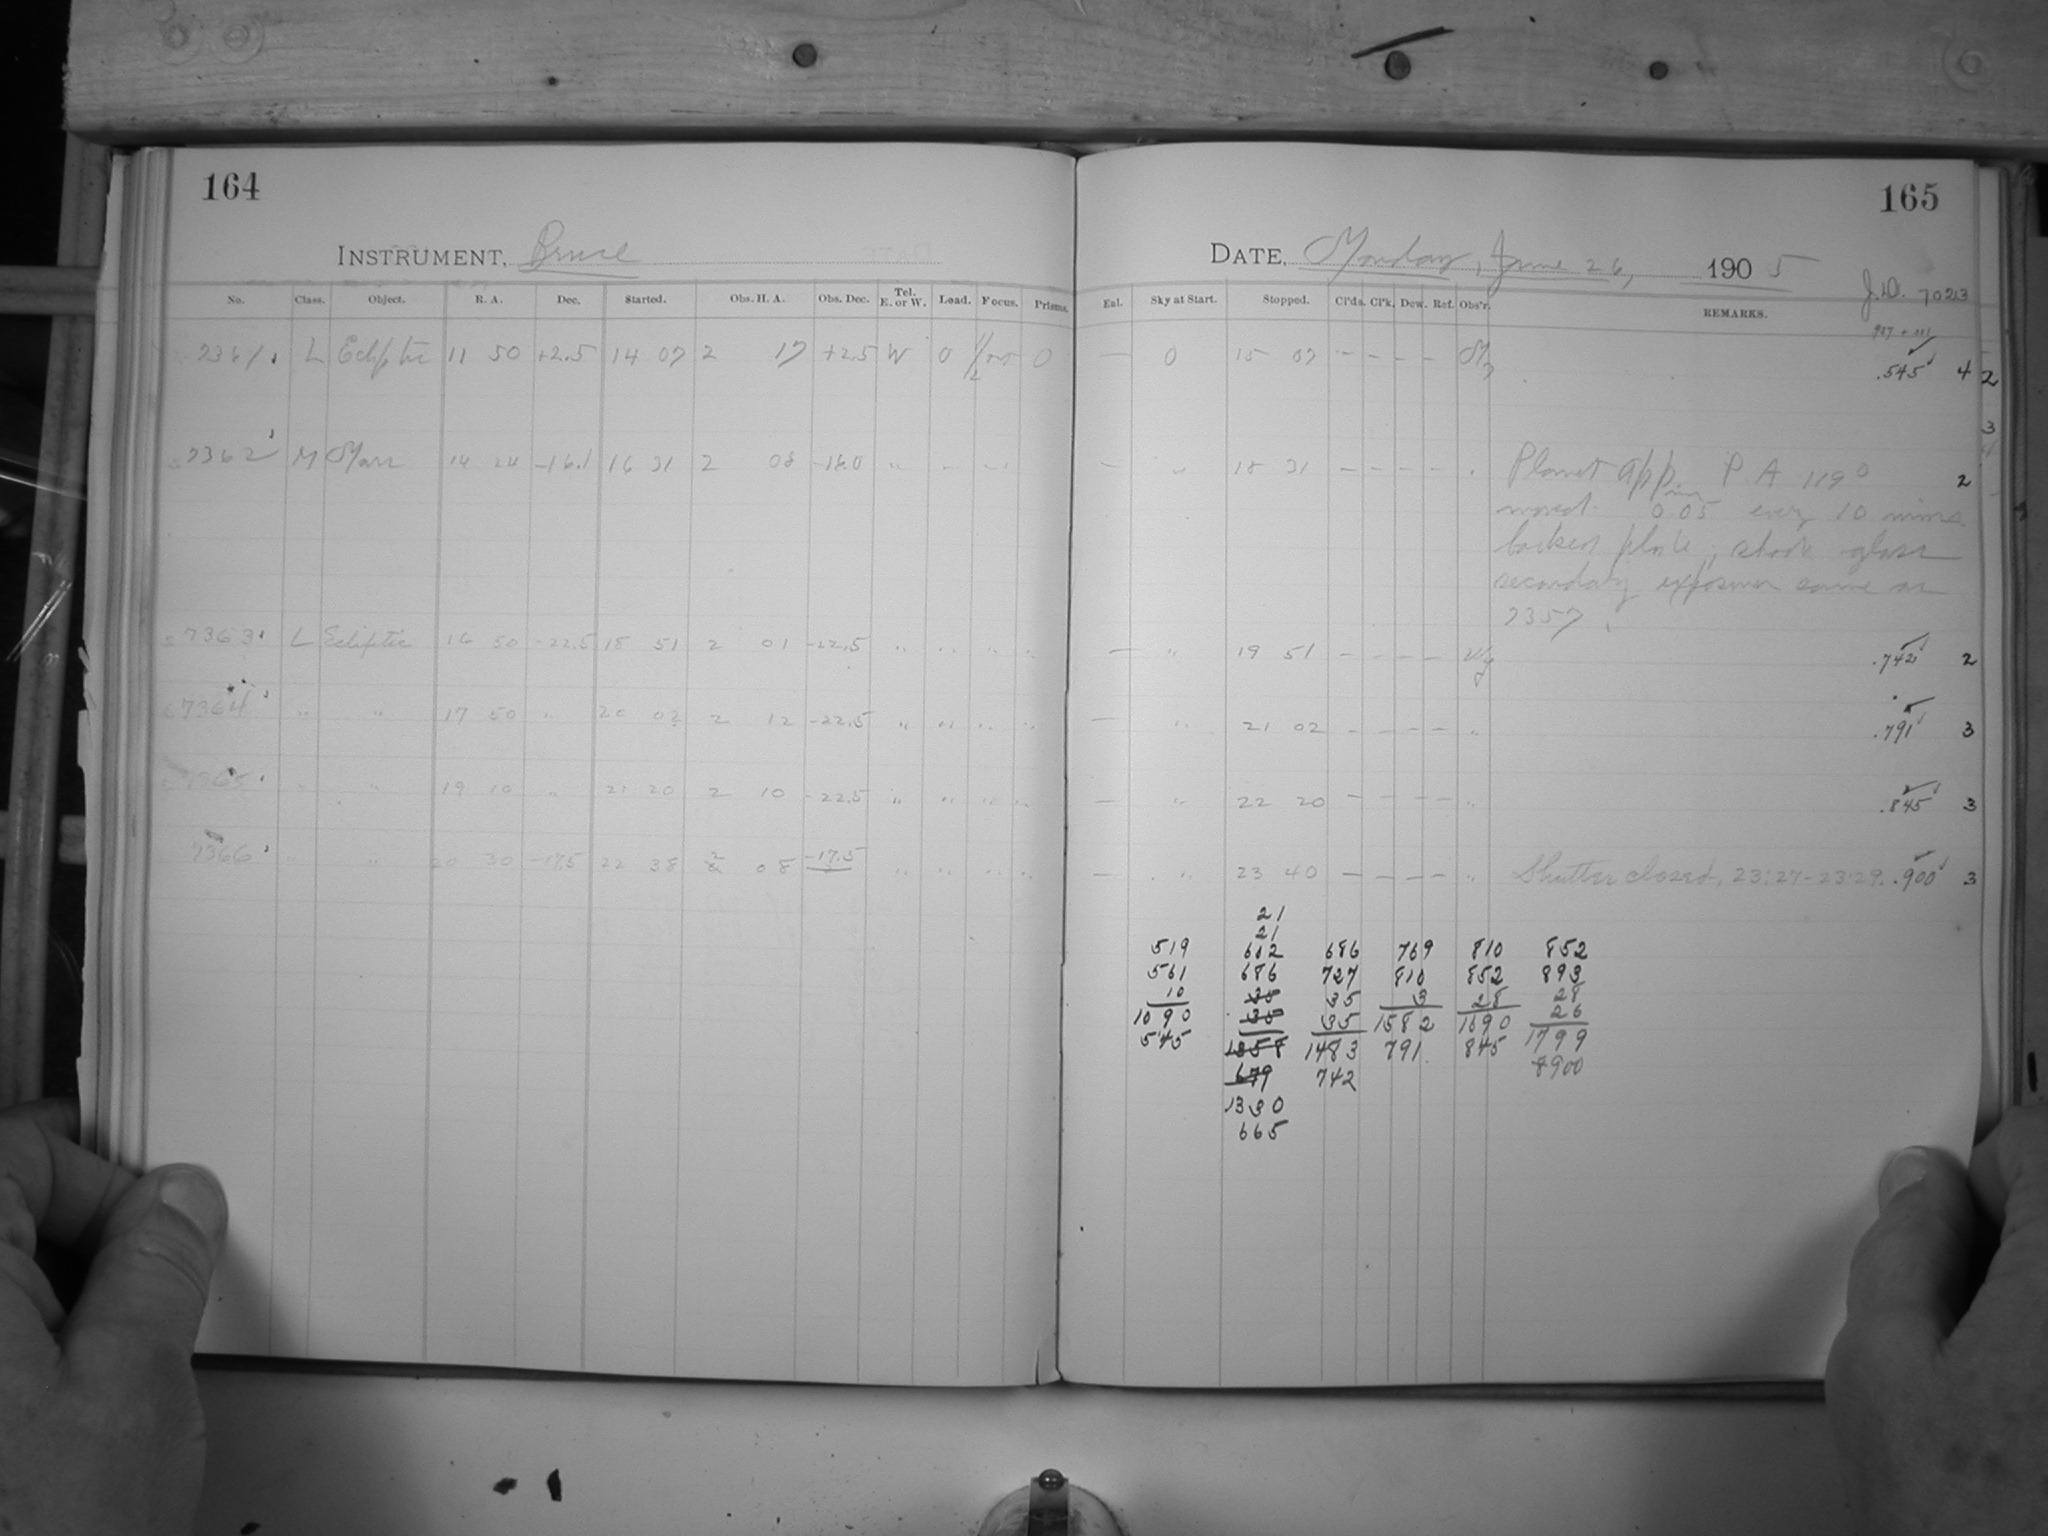 164
165
INSTRUMENT, Bruce
DATE, Monday, June 26, 1905
J.D. 7023
No. Class. Object. R. A. Dec. Started. Obs. H. A. Obs. Dec. Tel. E. or W. Load. Focus. Prisms.
Eal. Sky at Start. Stopped. Cl'ds. Cl'k. Dew. Ref. Obs'r. REMARKS.
7361 L Ecliptic 11 50 +2.5 14 07 2 17 +2.5 W 0 0 — 0 15 07 - - - - .545 4
2
3
7362 M 14 24 -16.1 16 31 2 08 -16.0 " - — " 18 31 — — — — Planet app. in P A 119° 2
moved 0.05 every 10 mins
backed plate, glass
secondary exposures same as
7357
7363 L Ecliptic 16 50 -22.5 18 51 2 01 -22.5 " " " " — " 19 51 — — — — .742 2
7364 " " 17 50 " 20 02 2 12 -22.5 " " " " — " 21 02 — — — — " .791 3
7365 " " 19 10 " 21 20 2 10 -22.5 " " " " — " 22 20 — — — — " .845 3
7366 " " 20 30 -17.5 22 38 2 08 -17.5 " " " " — " 23 40 — — — — " Shutter closed, 23:27-23:29. .900 3
21
21
519 612 686 769 810 852
561 686 727 810 852 893
10 35 35 3 28 28
1090 35 35 1582 1690 26
545 1358 1483 791 845 1799
679 742 900
1330
665